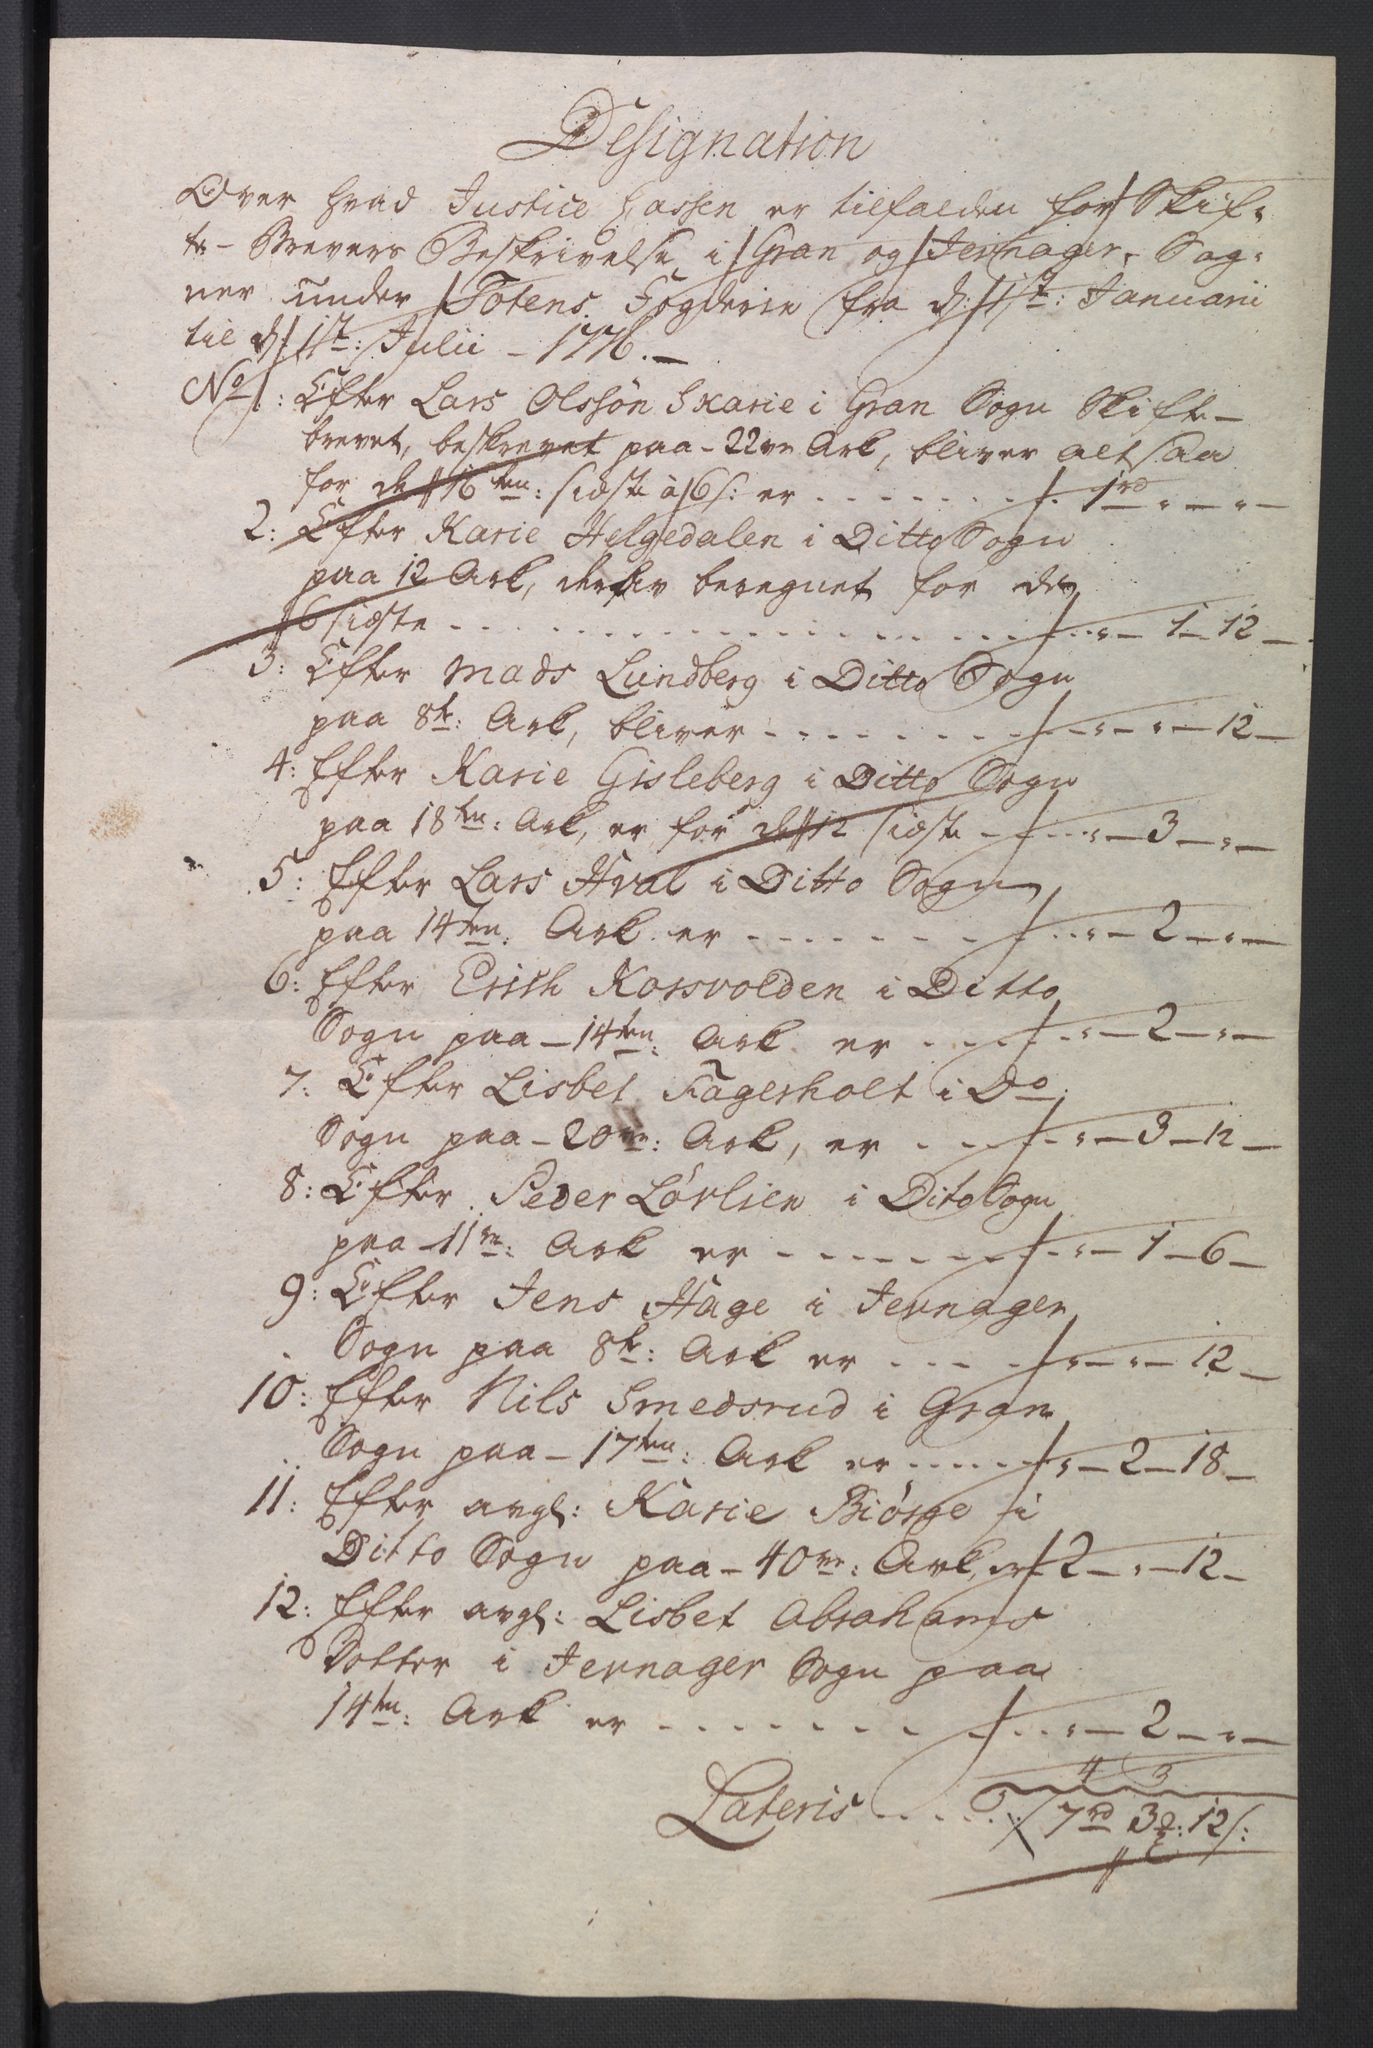 Designation
Over hvad Justice Cassen er tilfalden for Skif-
te-Brevers Beskrivelse i Gran og Jevnager Sog-
ner under Totens Fogderie fra d: 1ste: Januarii
til d: 1ste: Julii - 1776. -
No 1: Efter Lars Olssön Skarie i Gran Sogn Skifte-
brevet, beskrevet paa - 22ve Ark, bliver altsaa
for de 16ten: sidste à 6 s: er . . . . . . . 1rd „ - „ -
2: Efter Karie Helgedalen i Ditto Sogn
paa 12 Ark, derfor beregnet for de
6 sidste . . . . . . . . . . . . . . „ - 1 - 12 -
3: Efter Mads Lundberg i Ditto Sogn
paa 8te: Ark, bliver . . . . . . . . „ - „ - 12 -
4: Efter Karie Gisleberg i Ditto Sogn
paa 18ten: Ark, er for de 12 sidste - . . „ - 3 - „ -
5: Efter Lars Hval i Ditto Sogn
paa 14ten: Ark er . . . . . . . „ - 2 - „ -
6: Efter Erich Korsvolden i Ditto
Sogn paa - 14ten: Ark er . . . . „ - 2 - „ -
7: Efter Lisbet Fagerholt i Do
Sogn paa - 20ve: Ark, er . . . . „ - 3 - 12 -
8: Efter Peder Lövlien i Dito Sogn
paa - 11ve: Ark er . . . . . . . „ - 1 - 6 -
9: Efter Jens Hage i Jevnager
Sogn paa 8te: Ark er . . . . „ - „ - 12 -
10: Efter Nils Smedsrud i Gran
Sogn paa - 17ten: Ark er . . . . . „ - 2 - 18 -
11: Efter avgl: Karie Biörge i
Ditto Sogn paa - 40ve: Ark, er 2 - „ - 12 -
12: Efter avgl: Lisbet Abrahams
Dotter i Jevnager Sogn paa
14ten: Ark er . . . . . . . . „ - 2 - „ -
4 3
Lateris . . . . . 7rd 3 : 12 s: